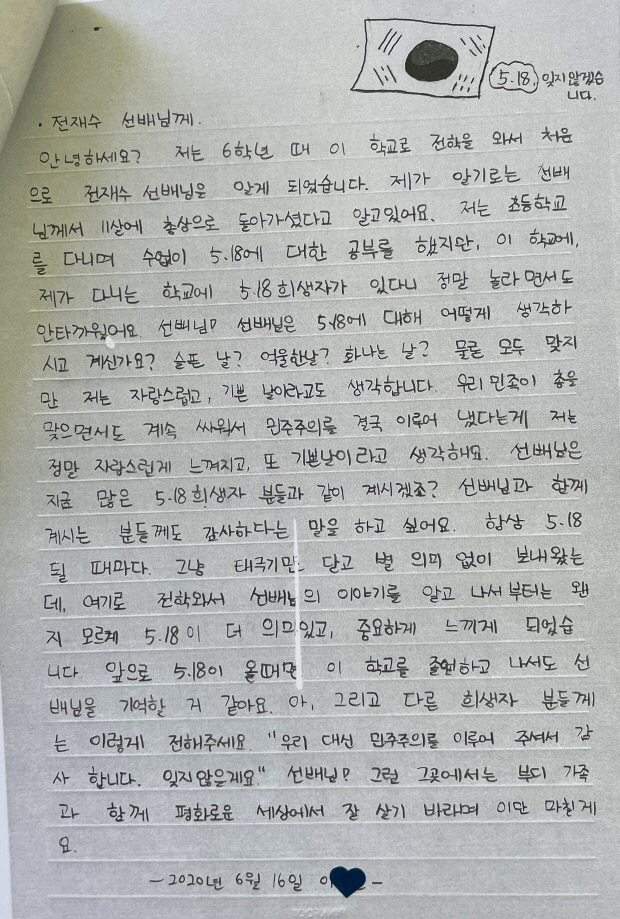 5.18, 잊지않겠습
니다.
· 전재수 선배님께.
안녕하세요? 저는 6학년 때 이 학교로 전학을 와서 처음
으로 전재수 선배님은 알게 되었습니다. 제가 알기로는 선배
님께서 11살에 총상으로 돌아가셨다고 알고있어요. 저는 초등학교
를 다니며 수없이 5.18에 대한 공부를 했지만, 이 학교에,
제가 다니는 학교에 5.18 희생자가 있다니 정말 놀라면서도
안타까웠어요. 선배님? 선배님은 5.18에 대해 어떻게 생각하
시고 계신가요? 슬픈 날? 억울한날? 화나는 날? 물론 모두 맞지
만 저는 자랑스럽고, 기쁜 날이라고도 생각합니다. 우리 민족이 총을
맞으면서도 계속 싸워서 민주주의를 결국 이루어 냈다는게 저는
정말 자랑스럽게 느껴지고, 또 기쁜날이라고 생각해요. 선배님은
지금 많은 5.18 희생자 분들과 같이 계시겠죠? 선배님과 함께
계시는 분들께도 감사하다는 말을 하고 싶어요. 항상 5.18
될 때마다. 그냥 태극기만 달고 별 의미 없이 보내왔는
데, 여기로 전학와서 선배님의 이야기를 알고 나서부터는 왠
지 모르게 5.18이 더 의미있고, 중요하게 느끼게 되었습
니다. 앞으로 5.18이 올때면 이 학교를 졸업하고 나서도 선
배님을 기억할 거 같아요. 아, 그리고 다른 희생자 분들께
는 이렇게 전해주세요. "우리 대신 민주주의를 이루어 주셔서 감
사 합니다. 잊지않은게요." 선배님? 그럼 그곳에서는 부디 가족
과 함께 평화로운 세상에서 잘 살기 바라며 이만 마칠게
요.
- 2020년 6월 16일 -